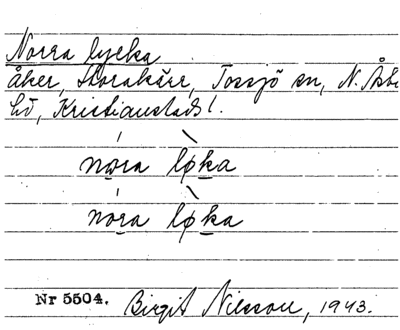 Norra lycka
åker, Storakärr, Tossjö sn, N. Åsbo
hd, Kristianstads l.
nora løka
nora løka
Nr 5504. Birgit Nilsson, 1943.